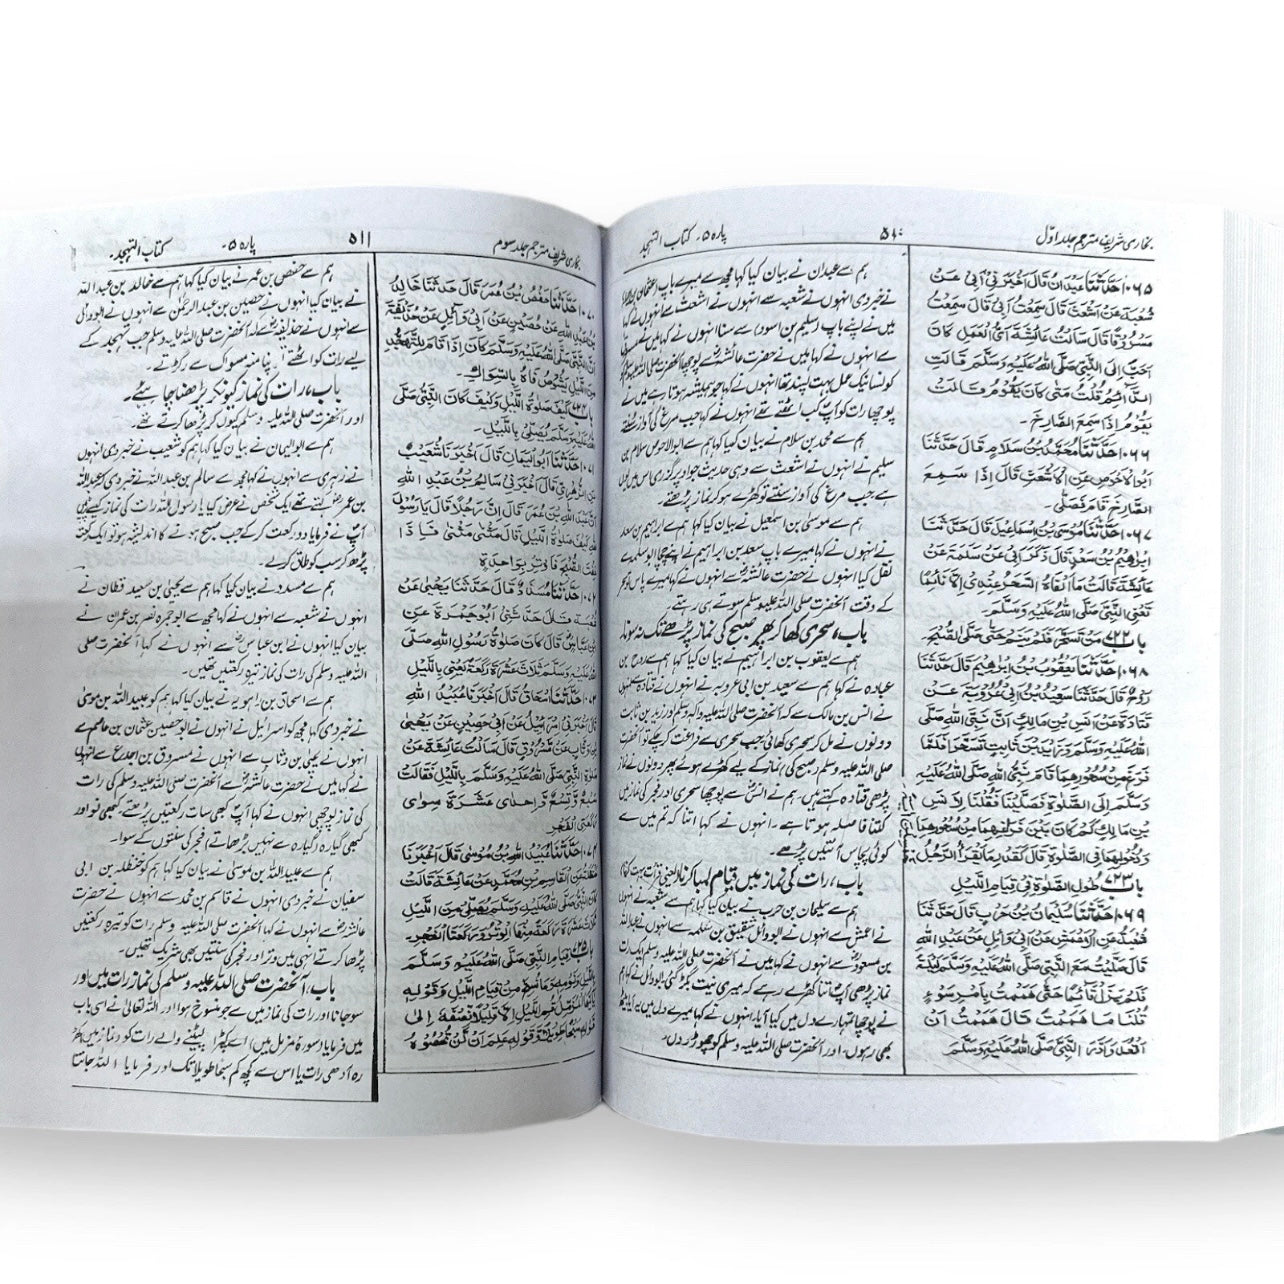 بخاری شریف مترجم جلد اوّل
۵۱۰
پارہ ۵۔ کتاب التہجد
۱۰۶۵ حَدَّثَنَا عَبْدَانُ قَالَ أَخْبَرَنِيْ أَبِيْ عَنْ
شُعْبَةَ عَنْ أَشْعَثَ قَالَ سَمِعْتُ أَبِيْ قَالَ سَمِعْتُ
مَسْرُوْقًا قَالَ سَأَلْتُ عَائِشَةَ أَيُّ الْعَمَلِ كَانَ
أَحَبَّ إِلَى النَّبِيِّ صَلَّى اللهُ عَلَيْهِ وَسَلَّمَ قَالَتْ
الدَّائِمُ قُلْتُ مَتٰى كَانَ يَقُوْمُ قَالَتْ
يَقُوْمُ إِذَا سَمِعَ الصَّارِخَ۔
۱۰۶۶ حَدَّثَنَا مُحَمَّدُ بْنُ سَلَامٍ قَالَ حَدَّثَنَا
أَبُو الْأَحْوَصِ عَنِ الْأَشْعَثِ قَالَ إِذَا سَمِعَ
الصَّارِخَ قَامَ فَصَلّٰى۔
۱۰۶۷ حَدَّثَنَا مُوْسَى بْنُ إِسْمَاعِيْلَ قَالَ حَدَّثَنَا
إِبْرَاهِيْمُ بْنُ سَعْدٍ قَالَ ذَكَرَ أَبِيْ عَنْ سَلَمَةَ عَنْ
عَائِشَةَ قَالَتْ مَا أَلْفَاهُ السَّحَرُ عِنْدِيْ إِلَّا نَائِمًا
تَعْنِي النَّبِيَّ صَلَّى اللهُ عَلَيْهِ وَسَلَّمَ۔
باب ۷۲۲ مَنْ تَسَحَّرَ فَلَمْ يَنَمْ حَتّٰى صَلَّى
۱۰۶۸ حَدَّثَنَا يَعْقُوْبُ بْنُ إِبْرَاهِيْمَ قَالَ حَدَّثَنَا
رَوْحٌ قَالَ حَدَّثَنَا سَعِيْدُ بْنُ أَبِيْ عَرُوْبَةَ عَنْ
قَتَادَةَ عَنْ أَنَسِ بْنِ مَالِكٍ أَنَّ نَبِيَّ اللهِ صَلَّى
اللهُ عَلَيْهِ وَسَلَّمَ وَزَيْدَ بْنَ ثَابِتٍ تَسَحَّرَا فَلَمَّا
فَرَغَا مِنْ سُحُوْرِهِمَا قَامَ نَبِيُّ اللهِ صَلَّى اللهُ عَلَيْهِ
وَسَلَّمَ إِلَى الصَّلٰوةِ فَصَلَّيْنَا فَقُلْنَا لِأَنَسِ
بْنِ مَالِكٍ كَمْ كَانَ بَيْنَ فَرَاغِهِمَا مِنْ سُحُوْرِهِمَا
وَدُخُوْلِهِمَا فِي الصَّلٰوةِ قَالَ كَقَدْرِ مَا يَقْرَأُ الرَّجُلُ
باب ۷۲۳ طُوْلِ الصَّلٰوةِ فِيْ قِيَامِ اللَّيْلِ
۱۰۶۹ حَدَّثَنَا سُلَيْمَانُ بْنُ حَرْبٍ قَالَ حَدَّثَنَا
شُعْبَةُ عَنِ الْأَعْمَشِ عَنْ أَبِيْ وَائِلٍ عَنْ عَبْدِ اللهِ
قَالَ صَلَّيْتُ مَعَ النَّبِيِّ صَلَّى اللهُ عَلَيْهِ وَسَلَّمَ لَيْلَةً
فَلَمْ يَزَلْ قَائِمًا حَتّٰى هَمَمْتُ بِأَمْرِ سَوْءٍ
قُلْنَا مَا هَمَمْتَ قَالَ هَمَمْتُ أَنْ
أَقْعُدَ وَأَذَرَ النَّبِيَّ صَلَّى اللهُ عَلَيْهِ وَسَلَّمَ
ہم سے عبدان نے بیان کیا کہا مجھ سے میرے باپ
نے خبر دی انہوں نے شعبہ سے انہوں نے اشعث سے انہوں نے کہا
میں نے اپنے باپ سلیم بن اسود سے سنا انہوں نے مسروق
سے انہوں نے کہا میں نے حضرت عائشہؓ سے پوچھا آنحضرت صلی اللہ علیہ وسلم
کو کونسا نیک عمل بہت پسند تھا انہوں نے کہا جو ہمیشہ ہوتا رہے میں نے
پوچھا رات کو آپ کب اٹھتے تھے انہوں نے کہا جب مرغ کی آواز سنتے
ہم سے محمد بن سلام نے بیان کیا کہا ہم سے ابوالاحوص سلام بن
سلیم نے انہوں نے اشعث سے وہی حدیث جو اوپر گذری اس میں یوں
ہے جب مرغ کی آواز سنتے تو کھڑے ہو کر نماز پڑھتے۔
ہم سے موسیٰ بن اسمٰعیل نے بیان کیا کہا ہم سے ابراہیم بن سعد
نے انہوں نے کہا میرے باپ سعد بن ابراہیم نے اپنے چچا ابو سلمہ سے
نقل کیا انہوں نے حضرت عائشہؓ سے انہوں نے کہا میرے پاس تو سحر
کے وقت آنحضرت صلی اللہ علیہ وسلم سوتے ہی رہتے۔
باب، سحری کھا کر پھر صبح کی نماز پڑھنے تک نہ سونا
ہم سے یعقوب بن ابراہیم نے بیان کیا کہا ہم سے روح بن
عبادہ نے کہا ہم سے سعید بن ابی عروبہ نے انہوں نے قتادہ سے انہوں
نے انس بن مالک سے کہ آنحضرت صلی اللہ علیہ وسلم اور زید بن ثابت
دونوں نے مل کر سحری کھائی جب سحری سے فراغت کر چکے تو آنحضرت
صلی اللہ علیہ وسلم (صبح کی) نماز کے لیے کھڑے ہوئے پھر دونوں نے نماز
پڑھی قتادہ کہتے ہیں، ہم نے انسؓ سے پوچھا سحری اور فجر کی نماز میں
کتنا فاصلہ ہوتا ہے۔ انہوں نے کہا اتنا کہ تم میں سے
کوئی پچاس آیتیں پڑھے۔
باب، رات کی نماز میں قیام لمبا کرنا (یعنی قرأت بہت کرنا)
ہم سے سلیمان بن حرب نے بیان کیا کہا ہم سے شعبہ نے انہوں
نے اعمش سے انہوں نے ابو وائل شقیق بن سلمہ سے انہوں نے عبداللہ
بن مسعودؓ سے انہوں نے کہا میں نے آنحضرت صلی اللہ علیہ وسلم ایک رات
نماز پڑھی آپ اتنا کھڑے رہے کہ میری نیت بگڑ گئی ابو وائل نے کہا ہم
نے پوچھا تمہارے دل میں کیا آیا، انہوں نے کہا میرے دل میں یہ آیا بیٹھ
بھی رہوں۔ اور آنحضرت صلی اللہ علیہ وسلم کو چھوڑ دوں۔
بخاری شریف مترجم جلد سوم
۵۱۱
پارہ ۵۔
کتاب التہجد۔
۱۰۷۰ حَدَّثَنَا حَفْصُ بْنُ عُمَرَ قَالَ حَدَّثَنَا خَالِدُ
عَبْدِ اللهِ عَنْ حُصَيْنٍ عَنْ أَبِيْ وَائِلٍ عَنْ حُذَيْفَةَ
أَنَّ النَّبِيَّ صَلَّى اللهُ عَلَيْهِ وَسَلَّمَ كَانَ إِذَا قَامَ لِلتَّهَجُّدِ
مِنَ اللَّيْلِ يَشُوْصُ فَاهُ بِالسِّوَاكِ۔
باب ۷۲۴ كَيْفَ صَلٰوةُ اللَّيْلِ وَكَيْفَ كَانَ النَّبِيُّ صَلَّى
اللهُ عَلَيْهِ وَسَلَّمَ يُصَلِّيْ بِاللَّيْلِ۔
۱۰۷۱ حَدَّثَنَا أَبُو الْيَمَانِ قَالَ أَخْبَرَنَا شُعَيْبٌ
عَنِ الزُّهْرِيِّ قَالَ أَخْبَرَنِيْ سَالِمُ بْنُ عَبْدِ اللهِ
أَنَّ عَبْدَ اللهِ بْنَ عُمَرَ قَالَ إِنَّ رَجُلًا قَالَ يَا رَسُوْلَ
اللهِ كَيْفَ صَلٰوةُ اللَّيْلِ قَالَ مَثْنٰى مَثْنٰى فَإِذَا
خِفْتَ الصُّبْحَ فَأَوْتِرْ بِوَاحِدَةٍ
حَدَّثَنَا مُسَدَّدٌ قَالَ حَدَّثَنَا يَحْيٰى عَنْ
شُعْبَةَ قَالَ حَدَّثَنِيْ أَبُوْ جَمْرَةَ عَنِ
ابْنِ عَبَّاسٍ قَالَ كَانَ صَلٰوةُ رَسُوْلِ اللهِ صَلَّى
اللهُ عَلَيْهِ وَسَلَّمَ ثَلَاثَ عَشْرَةَ رَكْعَةً يَعْنِيْ بِاللَّيْلِ
حَدَّثَنَا إِسْحَاقُ قَالَ أَخْبَرَنَا عُبَيْدُ اللهِ
قَالَ أَخْبَرَنَا إِسْرَائِيْلُ عَنْ أَبِيْ حَصِيْنٍ عَنْ يَحْيٰى
بْنِ وَثَّابٍ عَنْ مَسْرُوْقٍ قَالَ سَأَلْتُ عَائِشَةَ عَنْ
صَلٰوةِ النَّبِيِّ صَلَّى اللهُ عَلَيْهِ وَسَلَّمَ بِاللَّيْلِ فَقَالَتْ
سَبْعٌ وَتِسْعٌ وَإِحْدٰى عَشْرَةَ سِوٰى
رَكْعَتَيِ الْفَجْرِ
حَدَّثَنَا عُبَيْدُ اللهِ بْنُ مُوْسٰى قَالَ أَخْبَرَنَا
حَنْظَلَةُ عَنِ الْقَاسِمِ بْنِ مُحَمَّدٍ عَنْ عَائِشَةَ قَالَتْ
كَانَ النَّبِيُّ صَلَّى اللهُ عَلَيْهِ وَسَلَّمَ يُصَلِّيْ مِنَ اللَّيْلِ
ثَلَاثَ عَشْرَةَ رَكْعَةً مِنْهَا الْوِتْرُ وَرَكْعَتَا الْفَجْرِ۔
باب ۷۲۵ قِيَامِ النَّبِيِّ صَلَّى اللهُ عَلَيْهِ وَسَلَّمَ
بِاللَّيْلِ وَنَوْمِهِ وَمَا نُسِخَ مِنْ قِيَامِ اللَّيْلِ وَقَوْلِهِ
الْمُزَّمِّلُ قُمِ اللَّيْلَ إِلَّا قَلِيْلًا نِصْفَهُ إِلٰى
قَوْلِهِ سَبْحًا طَوِيْلًا وَقَوْلِهِ عَلِمَ أَنْ لَنْ تُحْصُوْهُ
ہم سے حفص بن عمر نے بیان کیا کہا ہم سے خالد بن عبداللہ
نے بیان کیا انہوں نے حصین بن عبدالرحمٰن سے انہوں نے ابو وائل
سے انہوں نے حذیفہؓ سے کہ آنحضرت صلی اللہ علیہ وسلم جب تہجد کے
لیے رات کو اٹھتے اپنا منہ مسواک سے رگڑتے۔
باب، رات کی نماز کیونکر پڑھنا چاہئے۔
اور آنحضرت صلی اللہ علیہ وسلم کیوں کر پڑھا کرتے تھے۔
ہم سے ابوالیمان نے بیان کیا کہا ہم کو شعیب نے خبر دی انہوں
نے زہری سے انہوں نے کہا مجھ سے سالم بن عبداللہ نے خبر دی کہ عبداللہ
بن عمرؓ کہتے تھے ایک شخص نے عرض کیا یا رسول اللہ رات کی نماز کیسے پڑھیں
آپ نے فرمایا دو رکعت کر کے جب صبح ہونے کا اندیشہ ہو تو ایک رکعت
پڑھ کر سب کو طاق کر لے۔
ہم سے مسدد نے بیان کیا کہا ہم سے یحییٰ بن سعید قطان نے
انہوں نے شعبہ سے انہوں نے کہا مجھ سے ابو جمرہ نصر بن عمران نے
بیان کیا انہوں نے ابن عباسؓ سے انہوں نے کہا آنحضرت صلی
اللہ علیہ وسلم کی رات کی نماز تیرہ رکعتیں تھیں۔
ہم سے اسحاق بن راہویہ نے بیان کیا کہا ہم کو عبیداللہ بن موسیٰ
نے خبر دی کہا مجھ کو اسرائیل نے انہوں نے ابو حصین عثمان بن عاصم سے
انہوں نے یحییٰ بن وثاب سے انہوں نے مسروق بن اجدع سے انہوں
نے کہا میں نے حضرت عائشہؓ سے آنحضرت صلی اللہ علیہ وسلم کی رات
کی نماز پوچھی انہوں نے کہا آپ کبھی سات رکعتیں پڑھتے، کبھی نو اور
کبھی گیارہ (گیارہ سے نہیں پڑھاتے) فجر کی سنتوں کے سوا۔
ہم سے عبیداللہ بن موسیٰ نے بیان کیا کہا ہم کو حنظلہ بن ابی
سفیان نے خبر دی انہوں نے قاسم بن محمد سے انہوں نے حضرت
عائشہؓ سے انہوں نے کہا آنحضرت صلی اللہ علیہ وسلم رات کو تیرہ رکعتیں
پڑھا کرتے انہی میں وتر اور فجر کی سنتیں بھی شریک تھیں۔
باب، آنحضرت صلی اللہ علیہ وسلم کی نماز رات میں اور
سو جانا اور رات کی نماز میں سے جو منسوخ ہوا اور اللہ تعالیٰ نے اسی باب
میں فرمایا (سورۃ مزمل میں) اے کپڑا لپیٹنے والے رات کو (نماز میں) کھڑا
رہ آدھی رات یا اس سے کچھ کم سبحا طویلا تک اور فرمایا اللہ جانتا